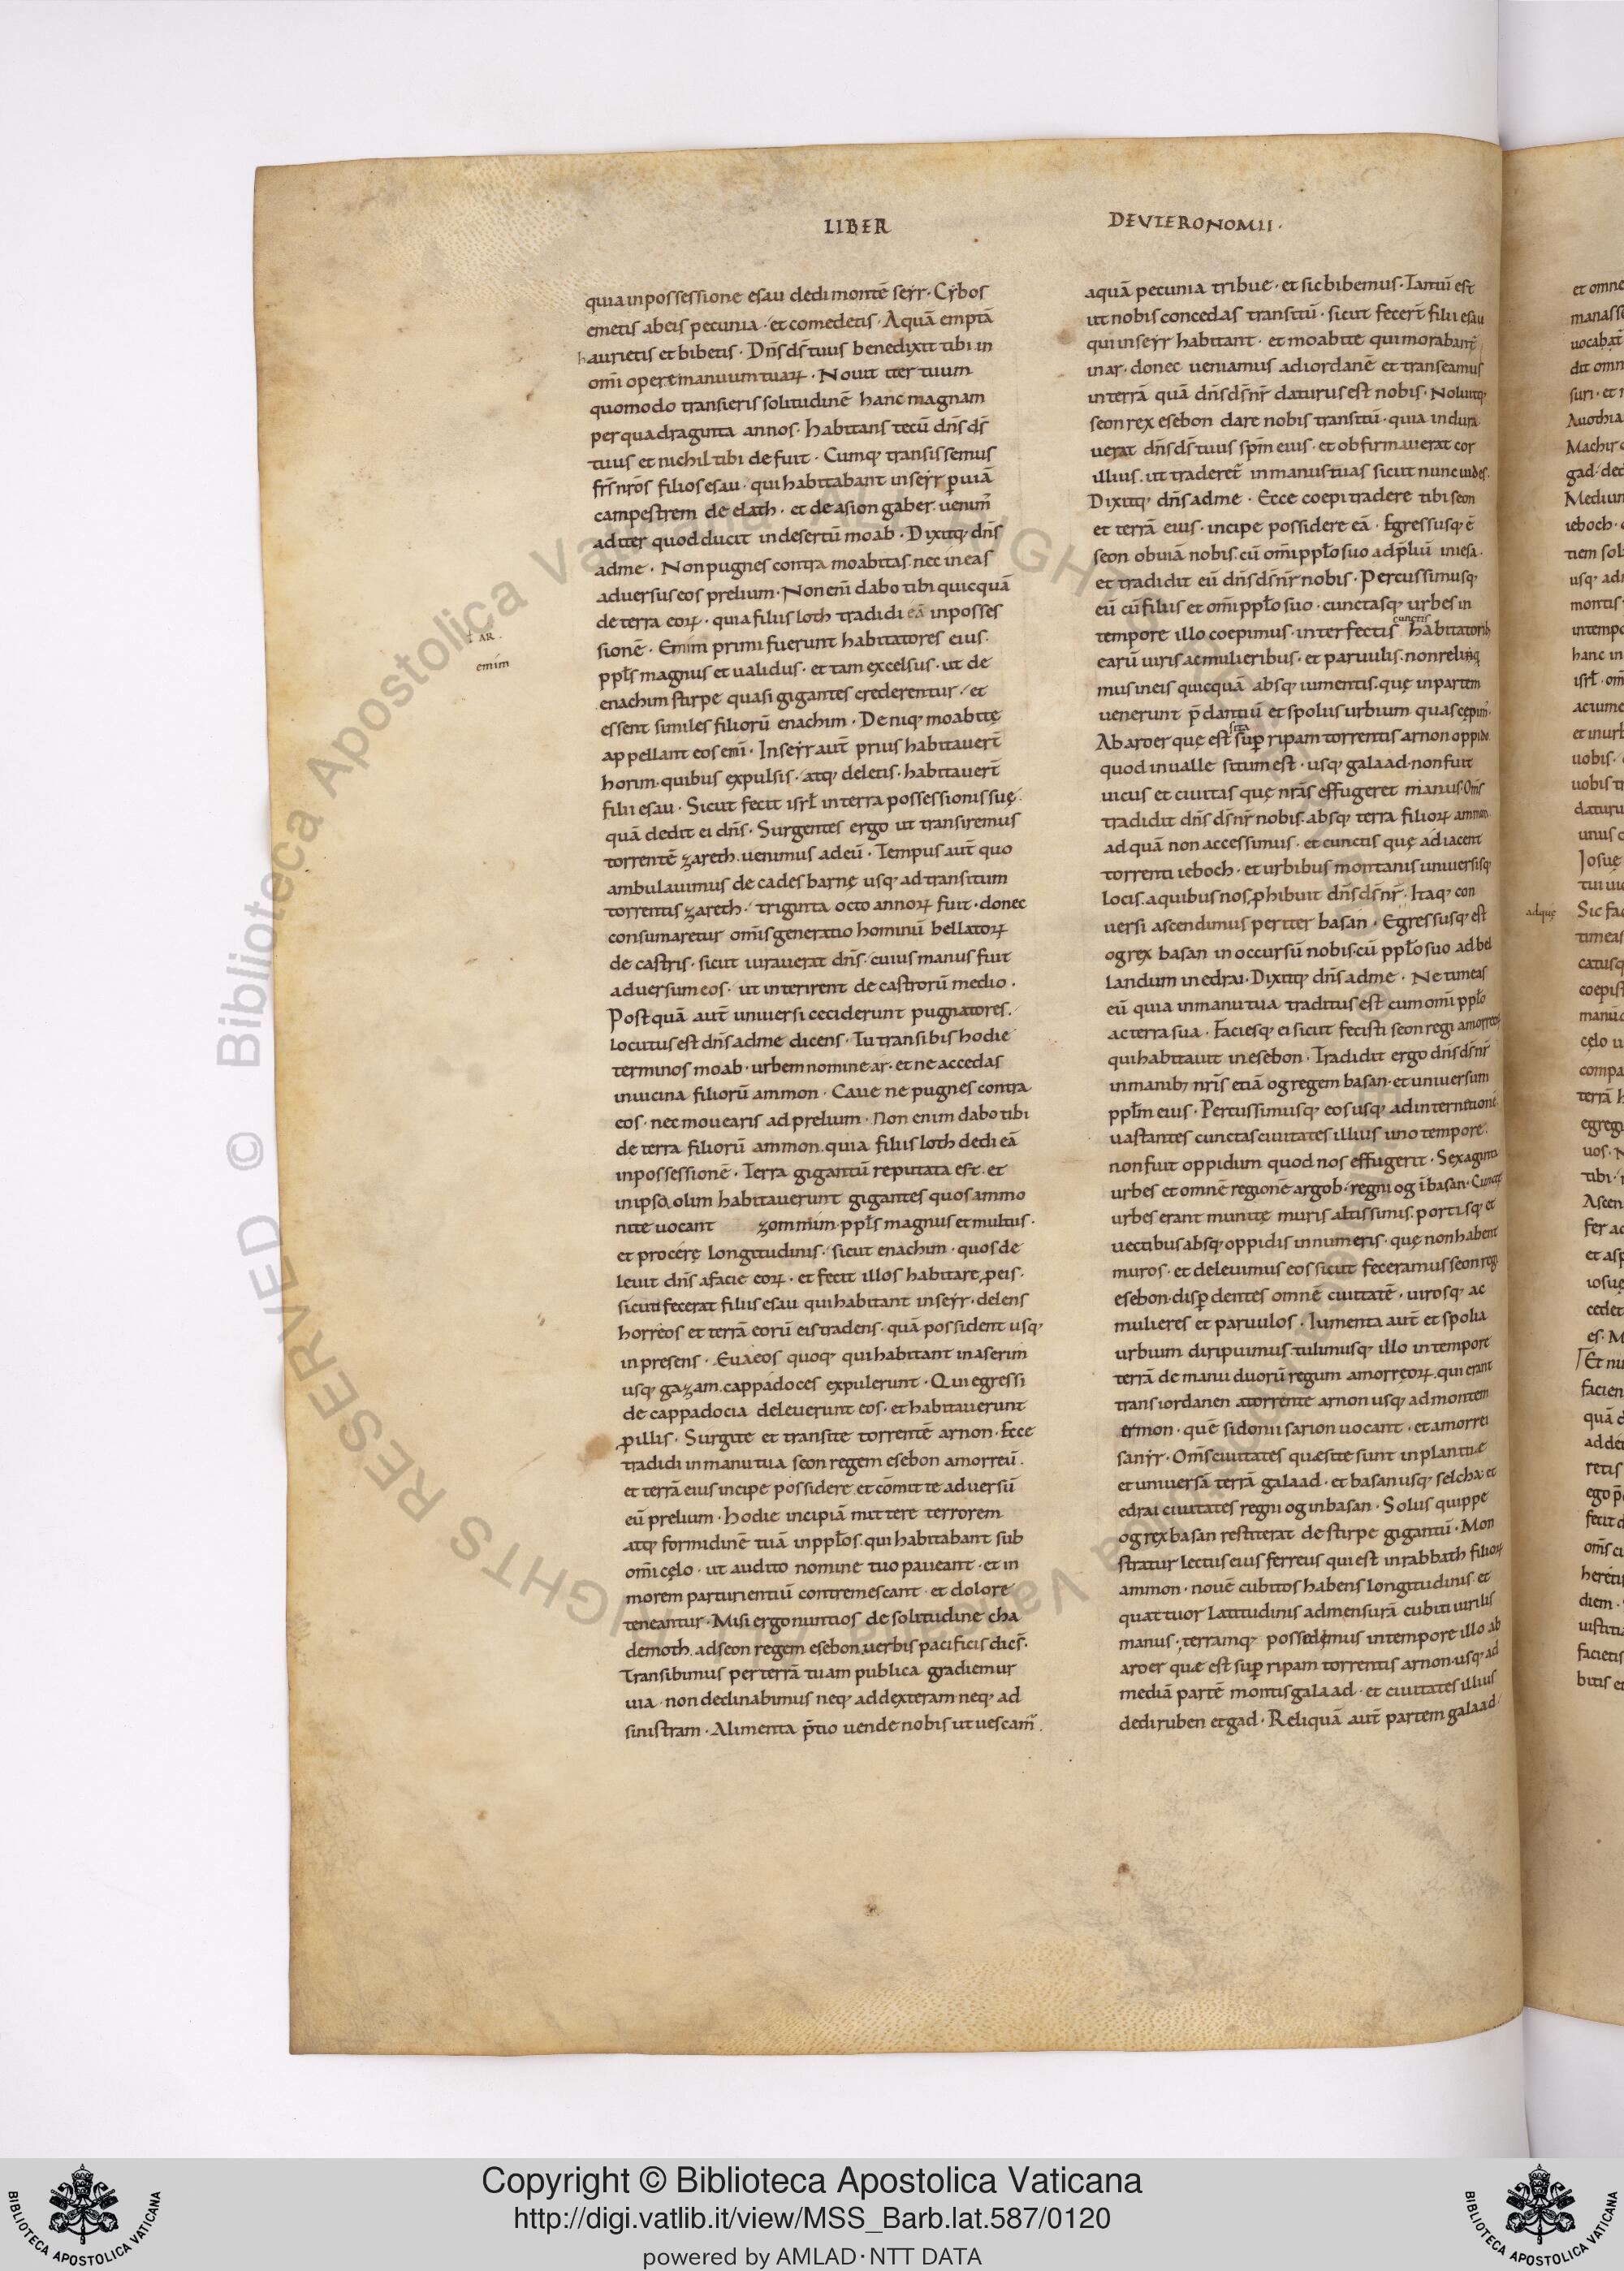 LIBER
DEUTERONOMII·
quia inpossessione esau dedi montē seyr· Cybos
emetis abeis pecunia· et comedetis· Aquā emptā
haurietis et bibetis· Dn̄s ds̄ tuus benedixit tibi in
om̄i opere manuum tuaꝝ· Nouit iter tuum
quomodo transieris solitudinē hanc magnam
per quadraginta annos· habitans tecū dn̄s ds̄
tuus et nichil tibi defuit· Cumq; transissemus
frs̄ nrōs filios esau· qui habitabant in seyr ꝑ uiā
campestrem de elath· et de asion gaber· uenim᷒
ad iter quod ducit indesertū moab· Dixitq; dn̄s
adme· Non pugnes contra moabitas nec in eas
aduersus eos prelium· Non eni᷒ dabo tibi quicquā
de terra eoꝝ· quia filiis loth tradidi eā inposses
sionē· Emim primi fuerunt habitatores eius·
ppl̄s magnus et ualidus· et tam excelsus· ut de
enachim stirpe quasi gigantes crederentur· et
essent similes filiorū enachim· Deniq; moabitę
appellant eos emī· In seyr aut̄ prius habitauer̄t
horim· quibus expulsis· atq; deletis· habitauer̄t
filii esau· Sicut fecit isrl̄ in terra possessionis suę·
quā dedit ei dn̄s· Surgentes ergo ut transiremus
torrentē zareth· uenimus adeū· Tempus aut̄ quo
ambulauimus de cades barnę usq; ad transitum
torrentis zareth· triginta octo annoꝝ fuit· donec
consumaretur om̄is generatio hominū bellatoꝝ
de castris· sicut iurauerat dn̄s· cuius manus fuit
aduersum eos· ut interirent de castrorū medio·
Postquā aut̄ uniuersi ceciderunt pugnatores·
locutus est dn̄s adme dicens· Tu transibis hodie
terminos moab· urbem nomine ar· et ne accedas
inuicina filiorū ammon· Caue ne pugnes contra
eos· nec mouearis ad prelium· non enim dabo tibi
de terra filiorū ammon· quia filiis loth dedi eā
inpossessionē· Terra gigantū reputata est· et
inipsa olim habitauerunt gigantes quos ammo
nite uocant zommim· ppl̄s magnus et multus·
et procerę longitudinis· sicut enachim· quos de
leuit dn̄s afacie eoꝝ· et fecit illos habitare ꝓ eis·
sicuti fecerat filiis esau qui habitant in seyr· delens
horreos et terrā eorū eis tradens· quā possident usq;
inpresens· Euaeos quoq; qui habitant in aserim
usq; gazam· cappadoces expulerunt· Qui egressi
de cappadocia deleuerunt eos· et habitauerunt
ꝓ illis· Surgite et transite torrentē arnon· Ecce
tradidi inmanu tua seon regem esebon amorreū·
et terrā eius incipe possidere et cōmitte aduersū
eū prelium· hodie incipiā mittere terrorem
atq; formidinē tuā in ppl̄os· qui habitabant sub
om̄i cęlo· ut audito nomine tuo paueant· et in
morem parturientiū contremescant· et dolore
teneantur· Misi ergo nuntios de solitudine cha
demoth· ad seon regem esebon uerbis pacificis dics̄·
Transibimus per terrā tuam publica gradiemur
uia· non declinabimus neq; ad dexteram neq; ad
sinistram· Alimenta p̄tio uende nobis ut uescam᷒·
AR·
emim
aquā pecunia tribue· et sic bibemus· Tantū est
ut nobis concedas transitū· sicut fecer̄t filii esau
qui inseyr habitant· et moabite qui moraban᷒
inar· donec ueniamus ad iordanē et transeamus
interrā quā dn̄s ds̄ nr̄ daturus est nobis· Noluitq;
seon rex esebon dare nobis transitū· quia indura
uerat dn̄s ds̄ tuus spm̄ eius· et obfirmauerat cor
illius· ut traderet᷒ inmanus tuas sicut nunc uides·
Dixitq; dn̄s adme· Ecce coepi tradere tibi seon
et terrā eius· incipe possidere eā· Egressusq; ē
seon obuiā nobis cū om̄i ppl̄o suo ad p̄liū in iesa·
et tradidit eū dn̄s ds̄ nr̄ nobis· Percussimusq;
eū cū filiis et om̄i ppl̄o suo· cunctasq; urbes in
tempore illo coepimus· interfectis cunctis habitatorib;
earū uiris ac mulieribus· et paruulis· non reliq
mus in eis quicquā absq; iumentis· quę inpartem
uenerunt p̄dantiū et spoliis urbium quas cepim᷒·
Ab aroer quę est sita suꝑ ripam torrentis arnon oppido
quod inualle situm est· usq; galaad· non fuit
uicus et ciuitas quę nrās effugeret manus· Om̄s
tradidit dn̄s ds̄ nr̄ nobis· absq; terra filioꝝ ammon·
ad quā non accessimus· et cunctis quę adiacent
torrenti ieboch· et urbibus montanis uniuersisq;
locis· aquibus nos ꝓhibuit dn̄s ds̄ nr̄· Itaq; con
uersi ascendimus per iter basan· Egressusq; est
og rex basan in occursū nobis· cū ppl̄o suo ad bel
landum in edrai· Dixitq; dn̄s adme· Ne timeas
eū quia inmanu tua traditus est cum om̄i ppl̄o
ac terra sua· Faciesq; ei sicut fecisti seon regi amorreoꝝ
qui habitauit in esebon· Tradidit ergo dn̄s ds̄ nr̄
inmanib; nrīs etiā og regem basan· et uniuersum
ppl̄m eius· Percussimusq; eos usq; ad internitionē·
uastantes cunctas ciuitates illius uno tempore·
non fuit oppidum quod nos effugerit· Sexaginta
urbes et omnē regionē argob· regni og ī basan· Cunctę
urbes erant munitę muris altissimis· portisq; et
uectibus absq; oppidis innumeris· quę non habent
muros· et deleuimus eos sicut feceramus seon regi
esebon· disꝑdentes omnē ciuitatē· uirosq; ac
mulieres et paruulos· Iumenta aut̄ et spolia
urbium diripuimus· tulimusq; illo in tempore
terrā de manu duorū regum amorręoꝝ· qui erant
trans iordanen atorrente arnon usq; ad montem
ermon· quē sidonii sarion uocant· et amorrei
sanyr· Om̄s ciuitates quę site sunt inplanitie
et uniuersā terrā galaad· et basan usq; selcha· et
edrai ciuitates regni og inbasan· Solus quippe
og rex basan restiterat de stirpe gigantū· Mon
stratur lectus eius ferreus qui est in rabbath filioꝝ
ammon· nouē cubitos habens longitudinis· et
quattuor latitudinis ad mensurā cubiti uirilis
manus· terramq; possedimus intempore illo ab
aroer quę est suꝑ ripam torrentis arnon· usq; ad
mediā partē montis galaad· et ciuitates illius
dedi ruben et gad· Reliquā aut̄ partem galaad·
adquę
et omne
dit omn
Machir
gad· ded
ieboch·
usq; ad
montis
hanc in
et inurb
uobis·
unus
Josuę
Sic fac
timeas
coepist
compa
terrā h
egregi
tibi·
Ascen
et asp
iosuę
Et nu
facien
quā
retis
diem·
facietis
bitis
Copyright © Biblioteca Apostolica Vaticana
http://digi.vatlib.it/view/MSS_Barb.lat.587/0120
powered by AMLAD·NTT DATA
BIBLIOTECA APOSTOLICA VATICANA
BIBLIOTECA APOSTOLICA VATICANA